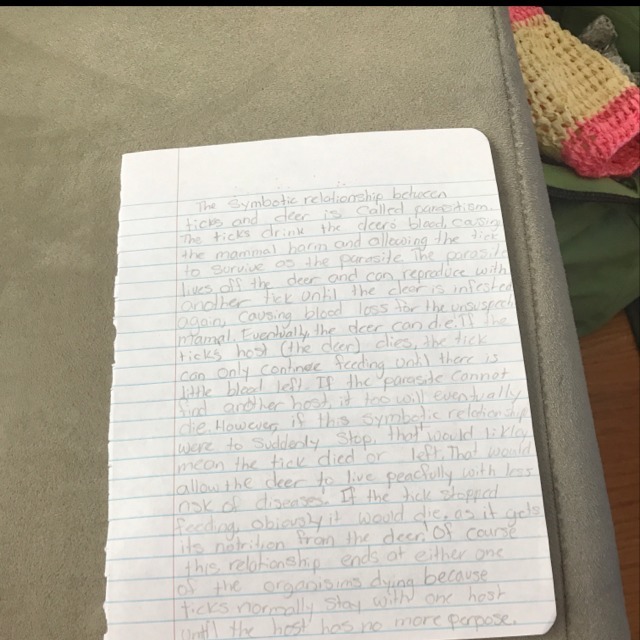 The symbotic relationship between
ticks and deer is called parasitism.
The ticks drink the deers blood, causing
the mammal harm and allowing the tick
to survive as the parasite. The parasite
lives off the deer and can reproduce with
another tick until the dear is infested
again, causing blood loss for the
mamal. Eventually, the deer can die. If the
ticks host (the deer) dies, the tick
can only continue feeding until there is
little blood left. If the parasite cannot
find another host, it too will eventually
die. However, if this symbotic relationship
were to suddedly stop, that would likley
mean the tick died or left. That would
allow the deer to live peacfully with less
risk of diseases. If the tick stopped
feeding, obiously it would die, as it gets
its nutrition from the deer. Of course
this relationship ends at either one
of the organisims dying because
ticks normally stay with one host
until the host has no more porpose.